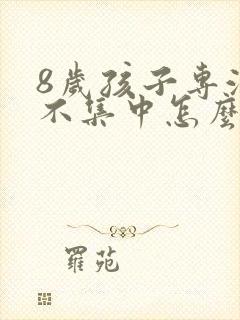 8歲孩子專注
不集中怎麼
羅苑